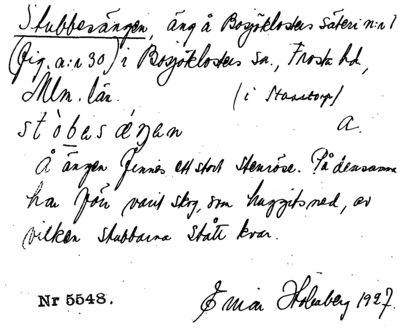 Stubbesängen, äng å Bosjöklosters säteri n:r 1
(fig. a:n 30) i Bosjöklosters sn., Frosta hd,
Mlm. län. (i Stanstorp)
stòbasæŋan a.
Å ängen finnes ett stort stenröse. På densamma
har förr varit skog, som huggits ned, av
vilken stubbarna stått kvar.
Nr 5548. Holmberg 1927.